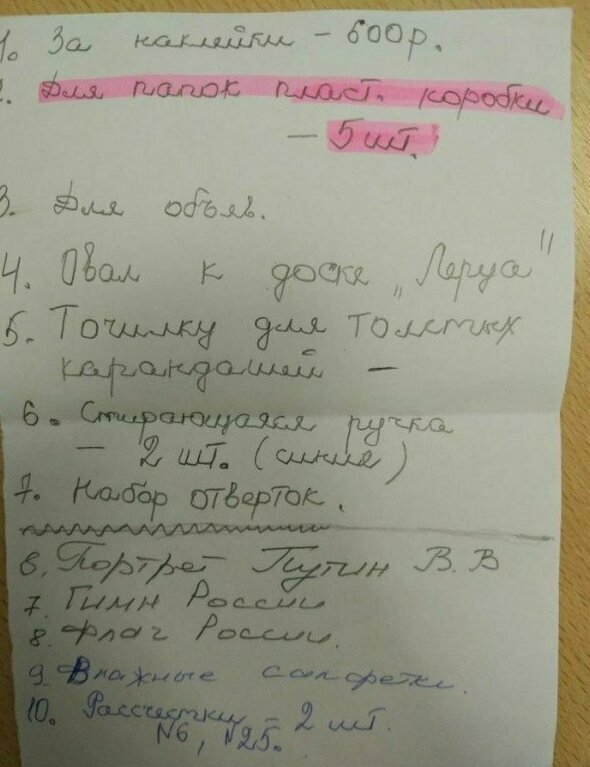 1. За наклейки – 600р.
2. Для папок пласт. коробки
– 5 шт.
3. Для объяв.
4. Овал к доске „Леруа"
5. Точилку для толстых
карандашей –
6. Стирающаяся ручка
– 2 шт. (синие)
7. Набор отверток.
6. Портрет Путин В.В
7. Гимн России
8. Флаг России.
9. Влажные салфетки.
10. Рассчестки – 2 шт.
№6, №25.